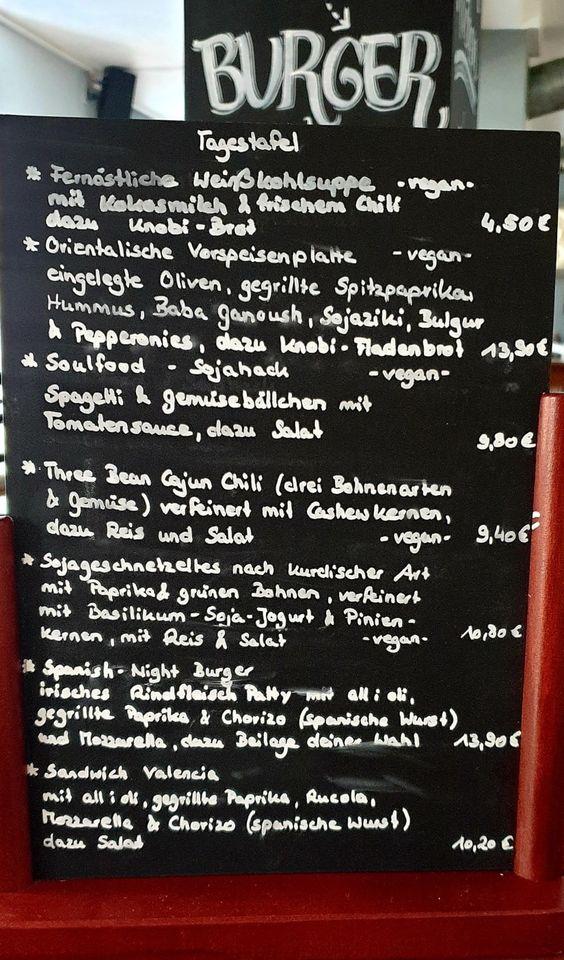 BURGER
Tagestafel
* Fernöstliche Weißkohlsuppe -vegan-
mit Kokosmilch & frischem Chili
dazu Knobi-Brot 4,50€
* Orientalische Vorspeisenplatte -vegan-
eingelegte Oliven, gegrillte Spitzpaprika,
Hummus, Baba ganoush, Sojaziki, Bulgur
& Pepperonies, dazu Knobi-Fladenbrot 13,90€
* Soulfood - Sojahack -vegan-
Spagetti & gemüsebällchen mit
Tomatensauce, dazu Salat
9,80€
* Three Bean Cajun Chili (drei Bohnenarten
& Gemüse) verfeinert mit Cashewkernen,
dazu Reis und Salat -vegan- 9,40€
* Sojageschnetzeltes nach kurdischer Art
mit Paprika & grünen Bohnen, verfeinert
mit Basilikum-Soja-Jogurt & Pinien-
kernen, mit Reis & Salat -vegan- 10,80€
* Spanish-Night Burger
irisches Rindfleisch Patty mit all i oli,
gegrillte Paprika & Chorizo (spanische Wurst)
und Mozzarella, dazu Beilage deiner Wahl 13,90€
* Sandwich Valencia
mit all i oli, gegrillte Paprika, Rucola,
Mozzarella & Chorizo (spanische Wurst)
dazu Salad 10,20€